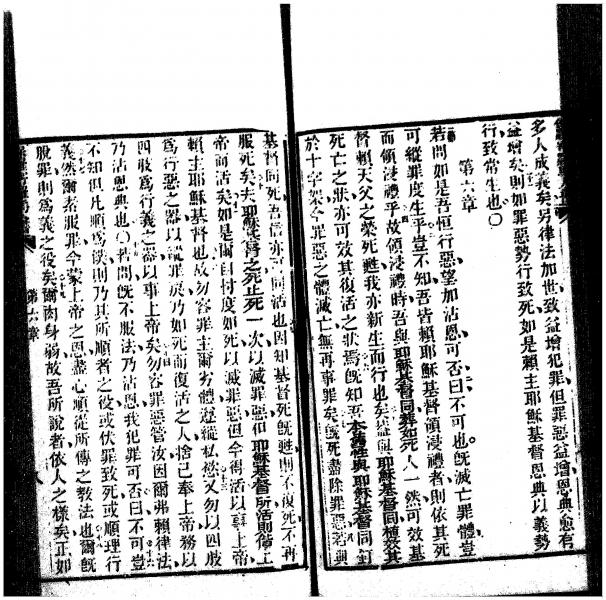 多人成義矣另律法加世致益增犯罪但罪惡益增恩典愈有
益增矣則如罪惡勢行致死如是賴主耶穌基督恩典以義勢
行致常生也〇
第六章
若問如是吾恒行惡望加沾恩可否曰不可也旣滅亡罪體豈
可縱罪度生乎豈不知吾皆賴耶穌基督領浸禮者則依其死
而領浸禮乎故領浸禮時吾與耶穌基督同葬如死人一然可效基
督賴天父之榮死甦我亦新生而行也矣蓋與耶穌基督同植效其
死亡之狀亦可效其復活之狀焉旣知吾本舊性與耶穌基督同釘
於十字架令罪惡之體滅亡無再事罪矣旣死盡除罪惡若與
基督同死吾信亦同活也因知基督死旣甦則不復死不再
服死矣夫耶穌基督之死止死一次以滅罪惡但耶穌基督所活則偕上
帝而活矣如是爾自忖度如死以滅罪惡但今得活以事上帝
賴主耶穌基督也故勿容罪主爾劣體遵縱私慾又勿以四肢
爲行惡之器以從罪戾乃如死而復活之人捨己奉上帝務以
四肢爲行義之器以事上帝矣勿容罪惡管汝因爾弗賴律法
乃沾恩典也〇若問旣不服法乃沾恩我犯罪可否曰不可豈
不知但凡順爲僕則乃其所順者之役或伏罪致死或順理行
義然爾素服罪今蒙上帝之恩盡心順從所傳之教法也爾旣
脫罪則爲義之役矣爾肉身弱故吾所說者依人之樣矣正如
第六章